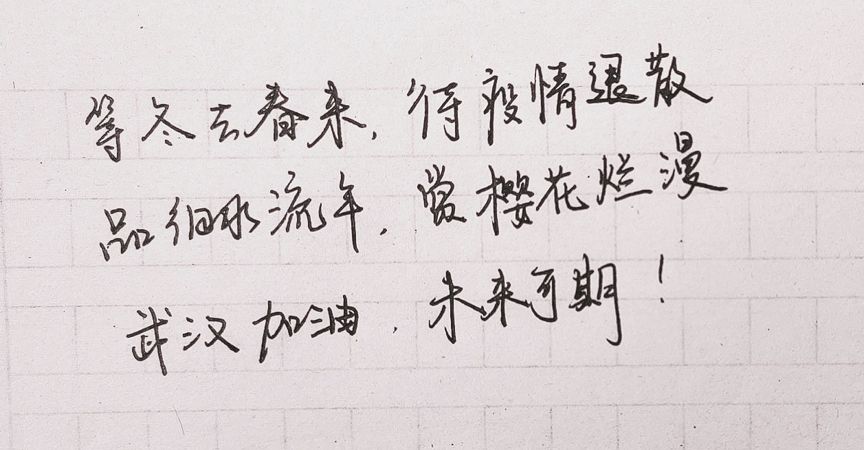 等冬去春来，待疫情退散
品细水流年，赏樱花烂漫
武汉加油，未来可期！